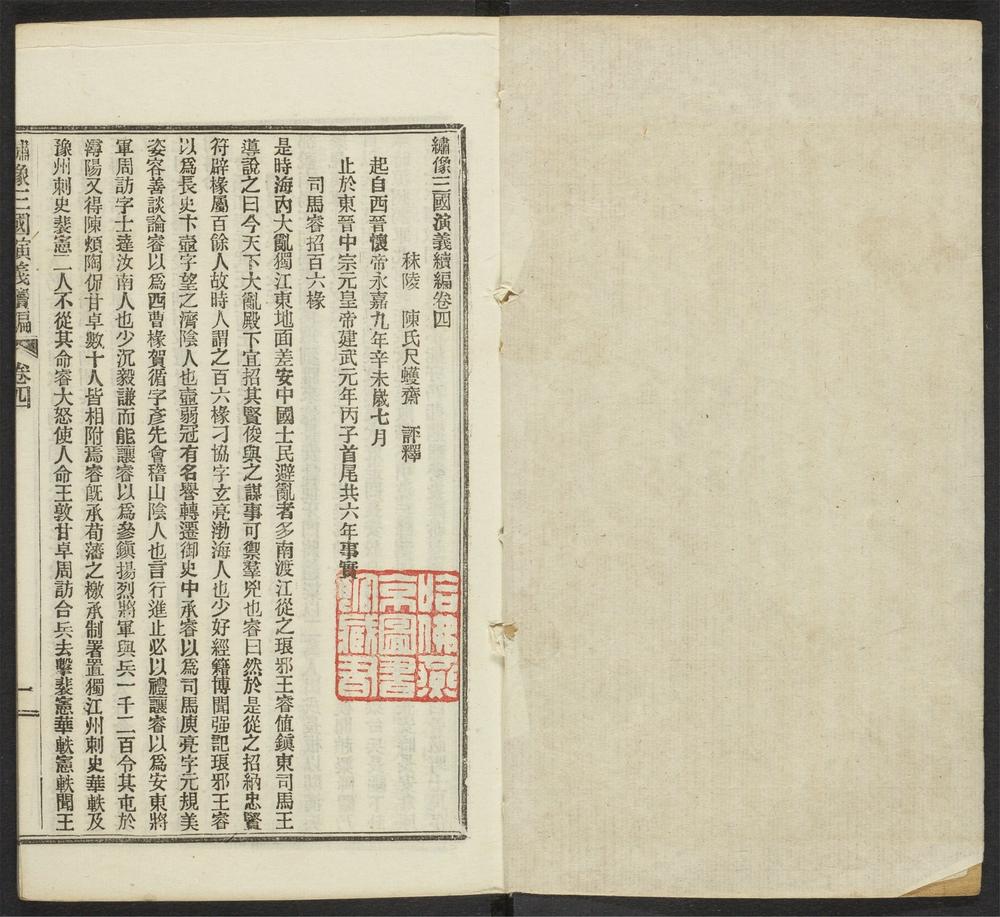 繡像三國演義續編卷四
秣陵 陳氏尺蠖齋 評釋
起自西晉懷帝永嘉九年辛未歲七月
止於東晉中宗元皇帝建武元年丙子首尾共六年事實
司馬睿招百六椽
是時海內大亂獨江東地面差安中國士民避亂者多南渡江從之琅邪王睿值鎮東司馬王
導說之曰今天下大亂殿下宜招其賢俊與之謀事可禦羣兇也睿曰然於是從之招納忠賢
符辟椽屬百餘人故時人謂之百六椽刁協字玄亮渤海人也少好經籍博聞强記琅邪王睿
以爲長史卞壺字望之濟陰人也壺弱冠有名譽轉遷御史中承睿以爲司馬庾亮字元規美
姿容善談論睿以爲西曹椽賀循字彥先會稽山陰人也言行進止必以禮讓睿以爲安東將
軍周訪字士達汝南人也少沉毅謙而能讓睿以爲參鎮揚烈將軍與兵一千二百令其屯於
潯陽又得陳頍陶侃甘卓數十人皆相附焉睿旣承荀藩之檄承制署置獨江州刺史華軼及
豫州刺史裴憲二人不從其命睿大怒使人命王敦甘卓周訪合兵去擊裴憲華軼憲軼聞王
繡像三國演義續編 卷四 一
哈佛燕
京圖書
館藏書